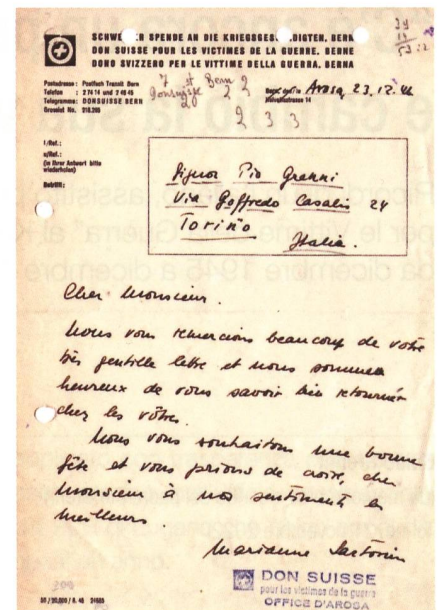 SCHWEIZER SPENDE AN DIE KRIEGSGESCHÄDIGTEN, BERN
DON SUISSE POUR LES VICTIMES DE LA GUERRE, BERNE
DONO SVIZZERO PER LE VITTIME DELLA GUERRA, BERNA
Postadresse: Postfach Transit Bern
Telefon : 2 74 14 und
Telegramme: DONSUISSE BERN
Arosa, 23.12.46
Donsuisse
2 3 3
I/Ref.:
n/Ref.:
(in Ihrer Antwort bitte
wiederholen)
Betrifft:
Signor Pio Granni
Via Goffredo Casalis 24
Torino
Italia.
Cher Monsieur.
Nous vous remercions beaucoup de votre
très gentille lettre et nous sommes
heureux de vous savoir bien retourné
chez les vôtres.
Nous vous souhaitons une bonne
fête et vous prions de croire, cher
Monsieur à nos sentiments les
meilleurs
Marianne
DON SUISSE
pour les victimes de la guerre
OFFICE D'AROSA